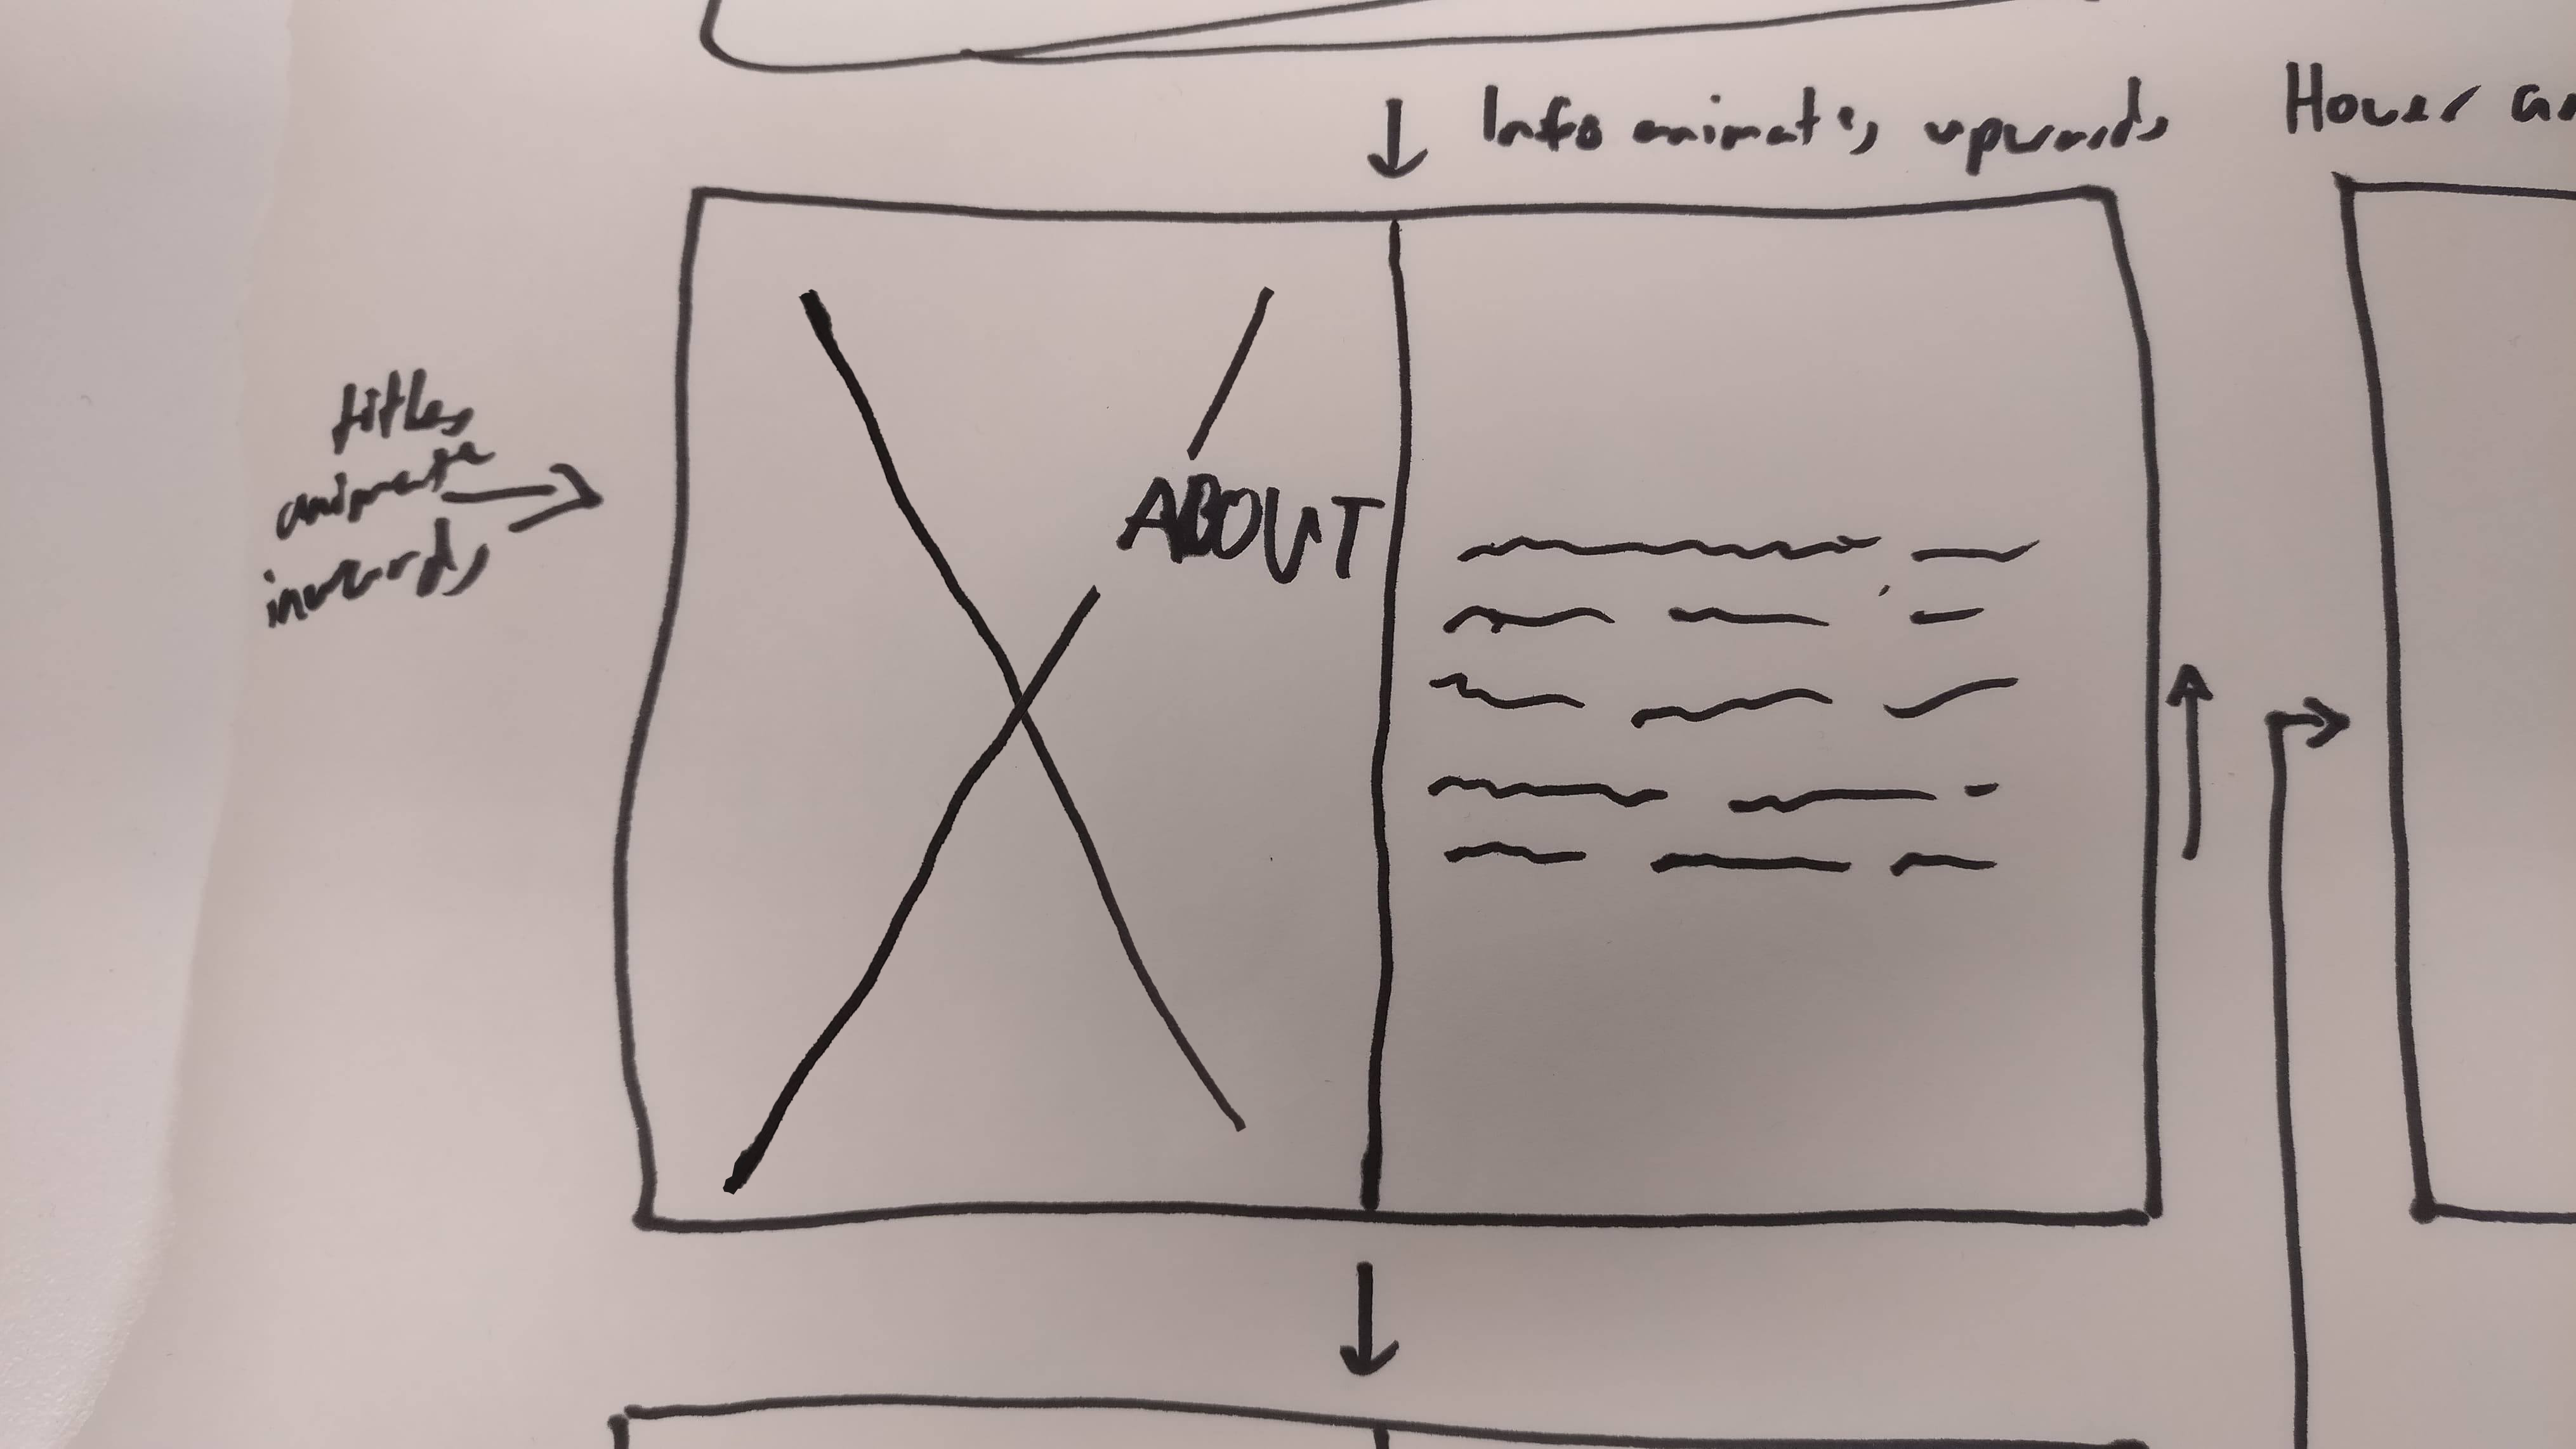 Info animates upwards
Hover
titles
animate
inwards
ABOUT